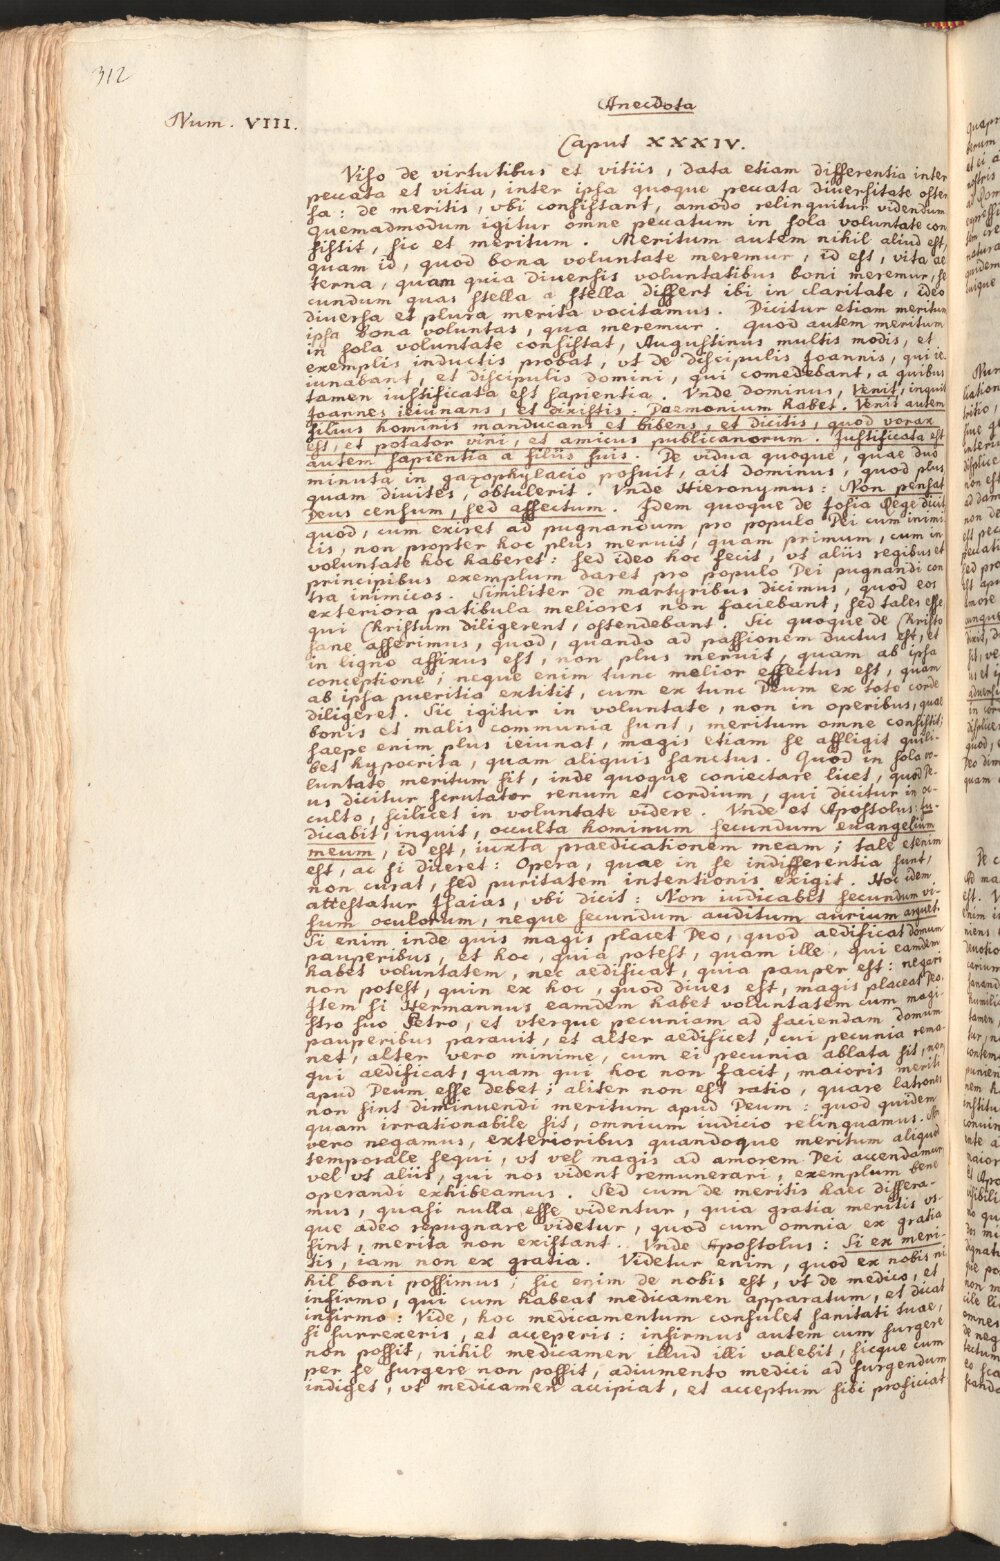 312
Anecdota
Num. VIII.
Caput XXXIV.
Viso de virtutibus et vitiis, data etiam differentia inter
peccata et vitia, inter ipsa quoque peccata diversitate osten
sa: de meritis, vbi consistant, amodo relinquitur videndum
Quemadmodum igitur omne peccatum in sola voluntate con
sistit, sic et meritum. Meritum autem nihil aliud est,
quam id, quod bona voluntate meremur, id est, vita ae
terna, quam quia diuersis voluntatibus boni meremur, se
cundum quas stella a stella differt ibi in claritate, ideo
diuersa et plura merita vocitamus. Dicitur etiam meritum
ipsa bona voluntas, qua meremur. Quod autem meritum
in sola voluntate consistat, Augustinus multis modis, et
exemplis inductis probat, vt de discipulis Joannis, qui ie
iunabant, et discipulis domini, qui comedebant, a quibus
tamen iustificata est sapientia. Vnde dominus, Venit, inquit
Joannes ieiunans, et dixistis. Daemonium habet. Venit autem
filius hominis manducans et bibens, et dicitis, quod vorax
est, et potator vini, et amicus publicanorum. Justificata est
autem sapientia a filiis suis. De vidua quoque, quae duo
minuta in gazophylacio posuit, ait dominus, quod plus
quam diuites, obtulerit. Vnde Hieronymus: Non pensat
Deus censum, sed affectum. Idem quoque de Josia Rege dicit
quod, cum exiret ad pugnandum pro populo Dei cum inimi
cis, non propter hoc plus meruit, quam primum, cum in
voluntate hoc haberet: sed ideo hoc fecit, vt aliis regibus et
principibus exemplum daret pro populo Dei pugnandi con
tra inimicos. Similiter de martyribus dicimus, quod eos
exteriora patibula meliores non faciebant, sed tales esse
qui Christum diligerent, ostendebant. Sic quoque de Christo
sane asserimus, quod, quando ad passionem ductus est, et
in ligno affixus est, non plus meruit, quam ab ipsa
conceptione; neque enim tunc melior effectus est, quam
ab ipsa pueritia extitit, cum ex tunc Deum ex toto corde
diligeret. Sic igitur in voluntate, non in operibus, quae
bonis et malis communia sunt, meritum omne consistit;
saepe enim plus ieiunat, magis etiam se affligit quili-
bet hypocrita, quam aliquis sanctus. Quod in sola vo-
luntate meritum sit, inde quoque coniectare licet, quod De-
us dicitur scrutator renum et cordium, qui dicitur in oc-
culto, scilicet in voluntate videre. Vnde et Apostolus: Iu-
dicabit, inquit, occulta hominum secundum euangelium
meum, id est, iuxta praedicationem meam; tale etenim
est, ac si diceret: Opera, quae in se indifferentia sunt,
non curat, sed puritatem intentionis exigit. Hoc idem
attestatur Isaias, vbi dicit: Non iudicabit secundum vi-
sum oculorum, neque secundum auditum aurium arguet.
Si enim inde quis magis placet Deo, quod aedificat domum
pauperibus, et hoc, quia potest, quam ille, qui eamdem
habet voluntatem, nec aedificat, quia pauper est: negari
non potest, quin ex hoc, quod diues est, magis placeat Deo.
Item si Hermannus eamdem habet voluntatem cum magi-
stro suo Petro, et vterque pecuniam ad faciendam domum
pauperibus parauit, et alter aedificet, cui pecunia rema-
net, alter vero minime, cum ei pecunia ablata sit, non
qui aedificat, quam qui hoc non facit, maioris meriti
apud Deum esse debet; aliter non est ratio, quare latrones
non sint diminuendi meritum apud Deum: quod quidem
quam irrationabile sit, omnium iudicio relinquamus. Non
vero negamus, exterioribus quandoque meritum aliquod
temporale sequi, vt vel magis ad amorem Dei accendamur
vel vt aliis, qui nos vident remunerari, exemplum bene
operandi exhibeamus. Sed cum de meritis haec differa-
mus, quasi nulla esse videntur, quia gratia meritis vs-
que adeo repugnare videtur, quod cum omnia ex gratia
sint, merita non existant. Vnde Apostolus: Si ex meri-
tis, iam non ex gratia. Videtur enim, quod ex nobis ni
hil boni possimus; sic enim de nobis est, vt de medico, et
infirmo, qui cum habeat medicamen apparatum, et dicat
infirmo: Vide, hoc medicamentum consulet sanitati tuae,
si surrexeris, et acceperis: infirmus autem cum surgere
non possit, nihil medicamen illud illi valebit, sicque cum
per se surgere non possit, adiumento medici ad surgendum
indiget, vt medicamen accipiat, et acceptum sibi proficiat